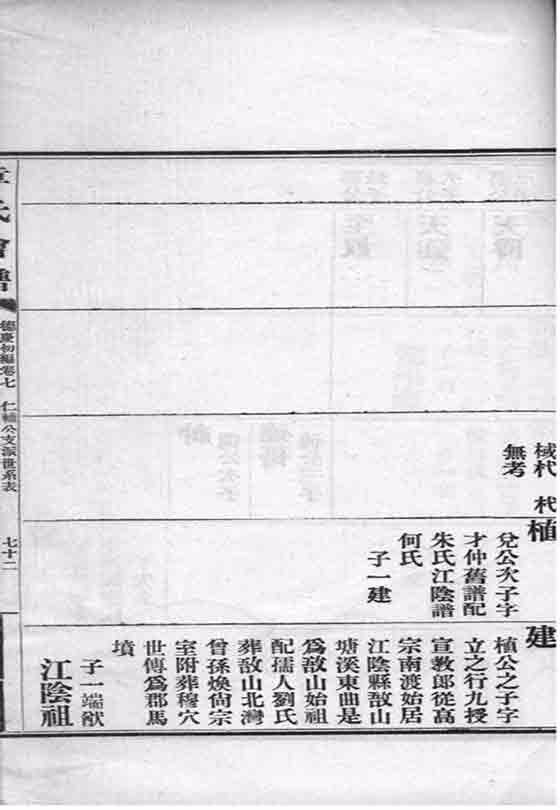 棫杙 杙
無考
植
兌公次子字
才仲舊譜配
朱氏江陰譜
何氏
子一建
建
植公之子字
立之行九授
宣教郎從高
宗南渡始居
江陰縣敔山
塘溪東曲是
爲敔山始祖
配孺人劉氏
葬敔山北灣
曾孫煥尙宗
室附葬穆穴
世傳爲郡馬
墳
子一端猷
江陰祖
章氏會譜
德慶初編卷七 仁輔公支派世系表
七十二